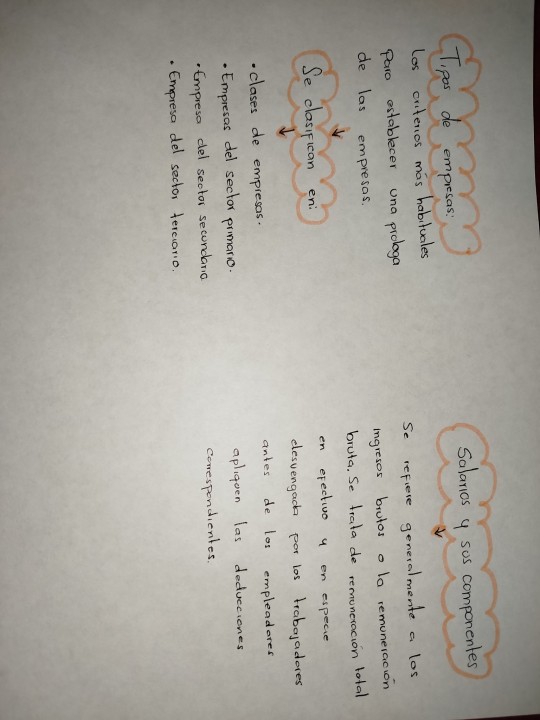 Tipos de empresas:
Los criterios más habituales
para establecer una prologa
de las empresas.
Se clasifican en:
• Clases de empresas.
• Empresas del sector primario.
• Empresa del sector secundario.
• Empresa del sector terciario.
Salarios y sus componentes
Se refiere generalmente a los
ingresos brutos o la remuneración
bruta. Se trata de remuneración total
en efectivo y en especie
desvengada por los trabajadores
antes de los empleadores
apliquen las deducciones
correspondientes.